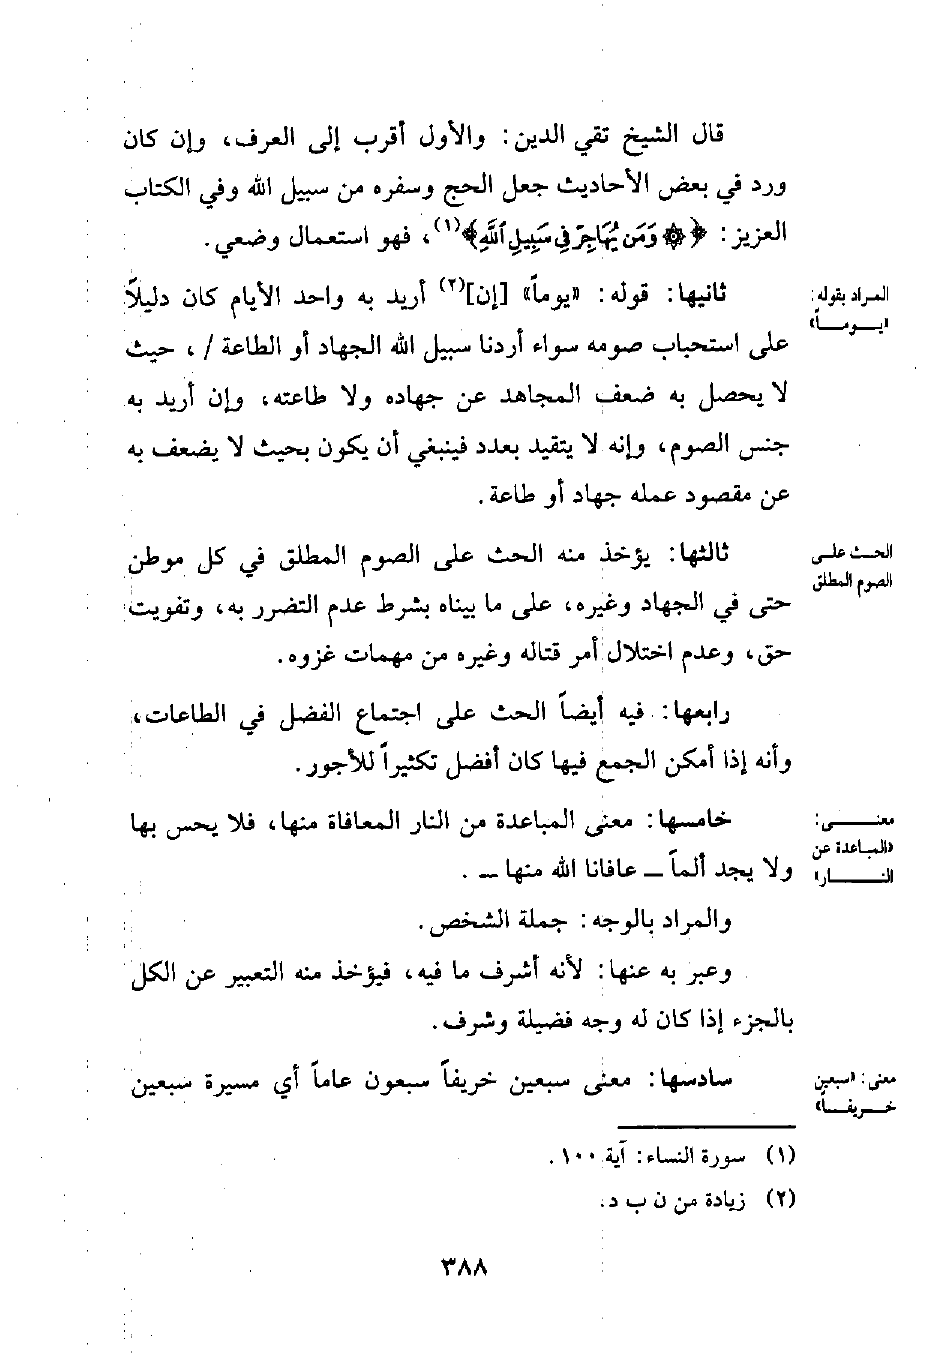 قال الشيخ تقي الدين: والأول أقرب إلى العرف، وإن كان
ورد في بعض الأحاديث جعل الحج وسفره من سبيل الله وفي الكتاب
العزيز: ﴿۞ وَمَن يُهَاجِرْ فِي سَبِيلِ ٱللَّهِ﴾(١)، فهو استعمال وضعي.
المراد بقوله:
«يـومـاً»
ثانيها: قوله: «يوماً» [إن](٢) أريد به واحد الأيام كان دليلاً
على استحباب صومه سواء أردنا سبيل الله الجهاد أو الطاعة /، حيث
لا يحصل به ضعف المجاهد عن جهاده ولا طاعته، وإن أريد به
جنس الصوم، وإنه لا يتقيد بعدد فينبغي أن يكون بحيث لا يضعف به
عن مقصود عمله جهاد أو طاعة.
الحث على
الصوم المطلق
ثالثها: يؤخذ منه الحث على الصوم المطلق في كل موطن
حتى في الجهاد وغيره، على ما بيناه بشرط عدم التضرر به، وتفويت
حق، وعدم اختلال أمر قتاله وغيره من مهمات غزوه.
رابعها: فيه أيضاً الحث على اجتماع الفضل في الطاعات،
وأنه إذا أمكن الجمع فيها كان أفضل تكثيراً للأجور.
معنـــى:
«المباعدة عن
النـــار»
خامسها: معنى المباعدة من النار المعافاة منها، فلا يحس بها
ولا يجد ألماً ــ عافانا الله منها ــ .
والمراد بالوجه: جملة الشخص.
وعبر به عنها: لأنه أشرف ما فيه، فيؤخذ منه التعبير عن الكل
بالجزء إذا كان له وجه فضيلة وشرف.
معنى: «سبعين
خـريفـاً»
سادسها: معنى سبعين خريفاً سبعون عاماً أي مسيرة سبعين
(١) سورة النساء: آية ١٠٠.
(٢) زيادة من ن ب د.
٣٨٨